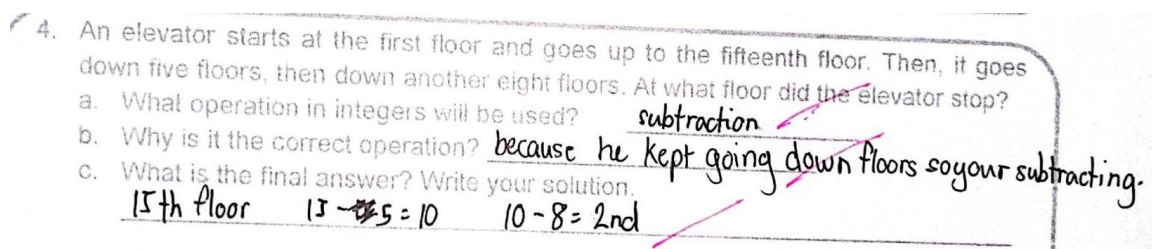 4. An elevator starts at the first floor and goes up to the fifteenth floor. Then, it goes
down five floors, then down another eight floors. At what floor did the elevator stop?
a. What operation in integers will be used? subtraction
b. Why is it the correct operation? because he kept going down floors so your subtracting.
c. What is the final answer? Write your solution.
15th floor 15 - 5 = 10 10 - 8 = 2nd